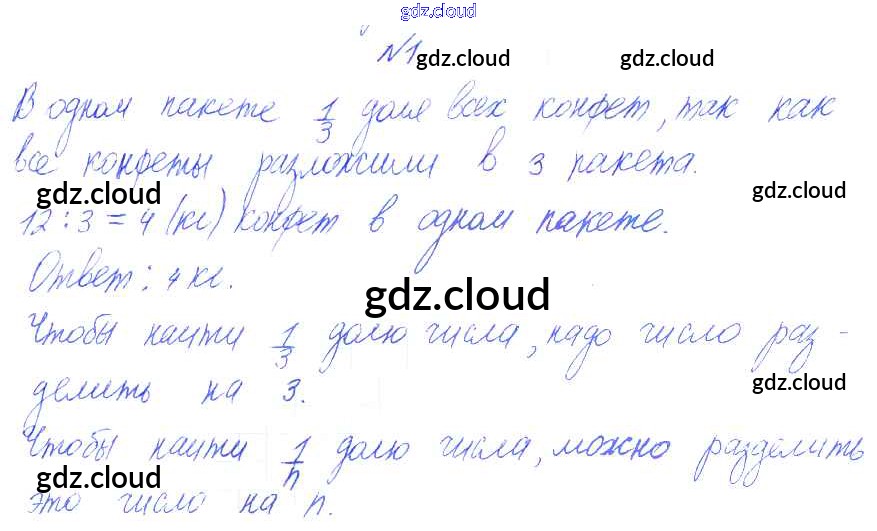 gdz.cloud
№1 gdz.cloud gdz.cloud
В одном пакете 1/3 доля всех конфет, так как
все конфеты разложили в 3 пакета.
gdz.cloud gdz.cloud
12 : 3 = 4 (кг) конфет в одном пакете.
Ответ: 4 кг.
gdz.cloud
Чтобы найти 1/3 долю числа, надо число раз-
делить на 3.
gdz.cloud
Чтобы найти 1/n долю числа, можно разделить
gdz.cloud gdz.cloud
это число на n.